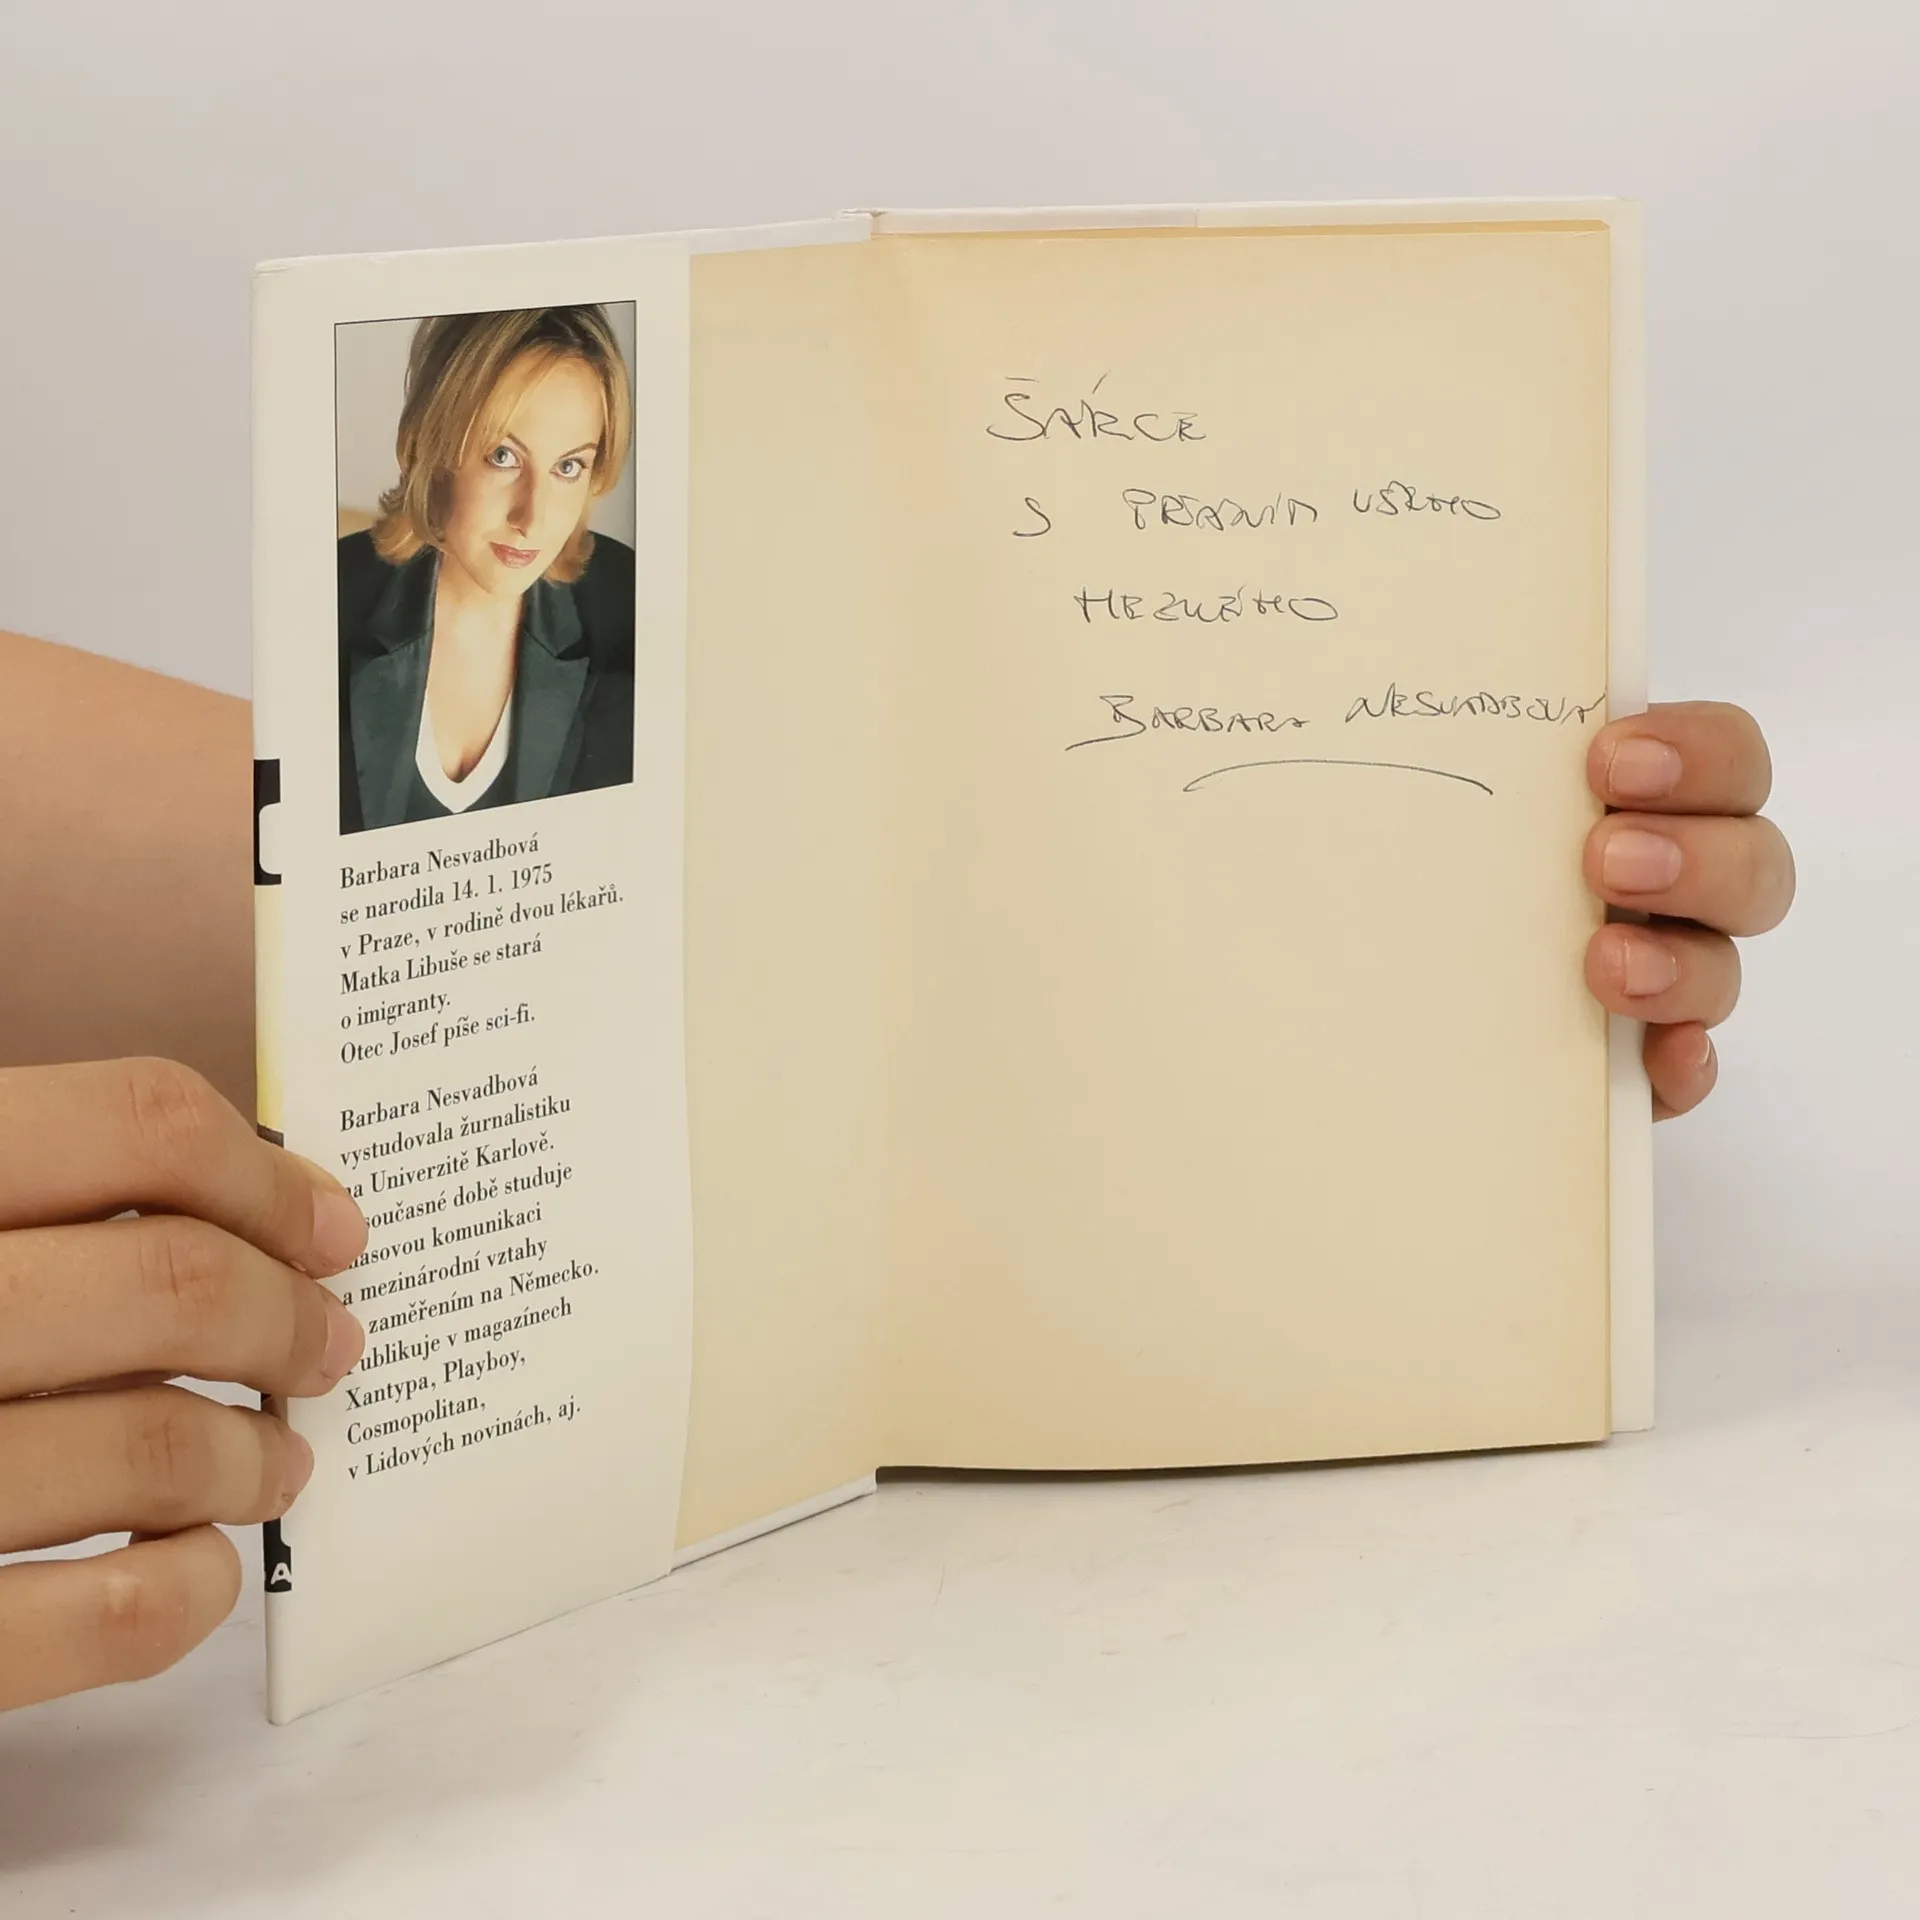 Barbara Nesvadbová
se narodila 14. 1. 1975
v Praze, v rodině dvou lékařů.
Matka Libuše se stará
o imigranty.
Otec Josef píše sci-fi.
Barbara Nesvadbová
vystudovala žurnalistiku
na Univerzitě Karlově.
současné době studuje
masovou komunikaci
a mezinárodní vztahy
zaměřením na Německo.
Publikuje v magazínech
Xantypa, Playboy,
Cosmopolitan,
v Lidových novinách, aj.
ŠÁRCE
S PŘÁNÍM VŠEHO
HEZKÉHO
BARBARA NESVADBOVÁ